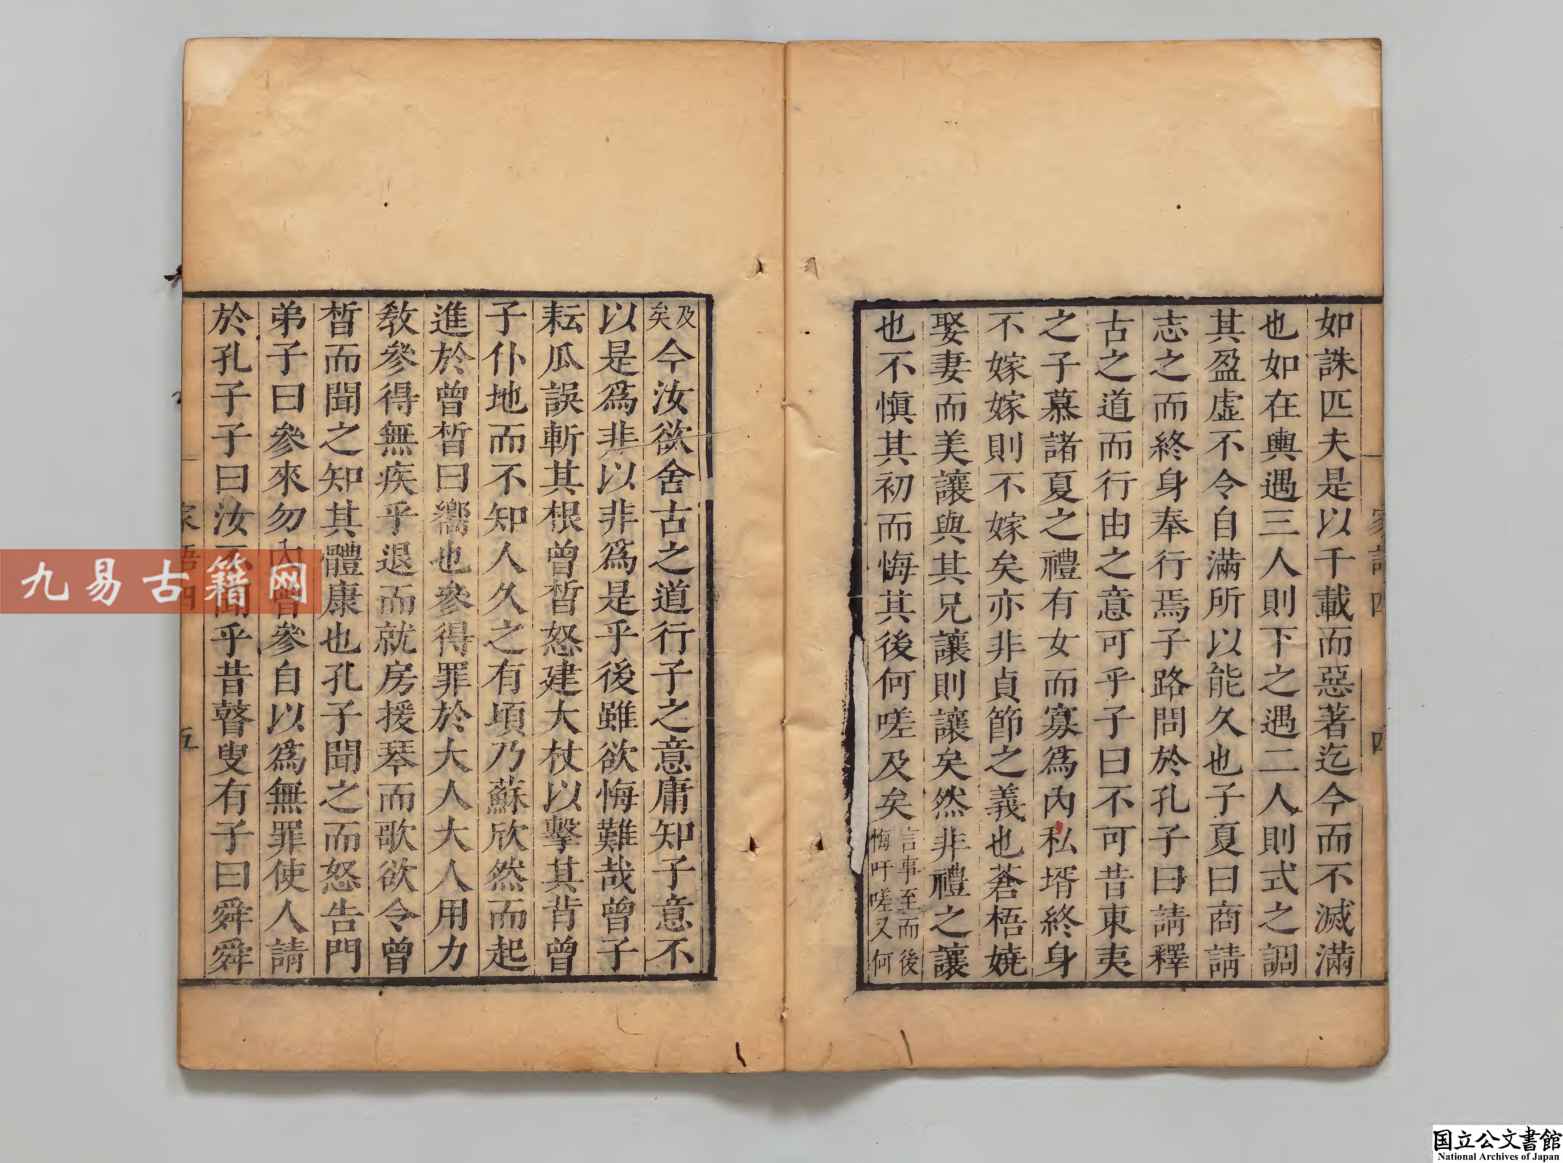 如誅匹夫是以千載而惡著迄今而不滅滿
也如在輿遇三人則下之遇二人則式之調
其盈虛不令自滿所以能久也子夏曰商請
志之而終身奉行焉子路問於孔子曰請釋
古之道而行由之意可乎子曰不可昔東夷
之子慕諸夏之禮有女而寡為內私壻終身
不嫁嫁則不嫁矣亦非貞節之義也蒼梧嬈
娶妻而美讓與其兄讓則讓矣然非禮之讓
也不慎其初而悔其後何嗟及矣言事至而後悔吁嗟又何
及矣今汝欲舍古之道行子之意庸知子意不
以是為非以非為是乎後雖欲悔難哉曾子
耘瓜誤斬其根曾晳怒建大杖以擊其背曾
子仆地而不知人久之有頃乃蘇欣然而起
進於曾晳曰嚮也參得罪於大人大人用力
教參得無疾乎退而就房援琴而歌欲令曾
晳而聞之知其體康也孔子聞之而怒告門
弟子曰參來勿內曾參自以為無罪使人請
於孔子子曰汝不聞乎昔瞽叟有子曰舜舜
家語四
四
家語四
五
九易古籍网
国立公文書館
National Archives of Japan